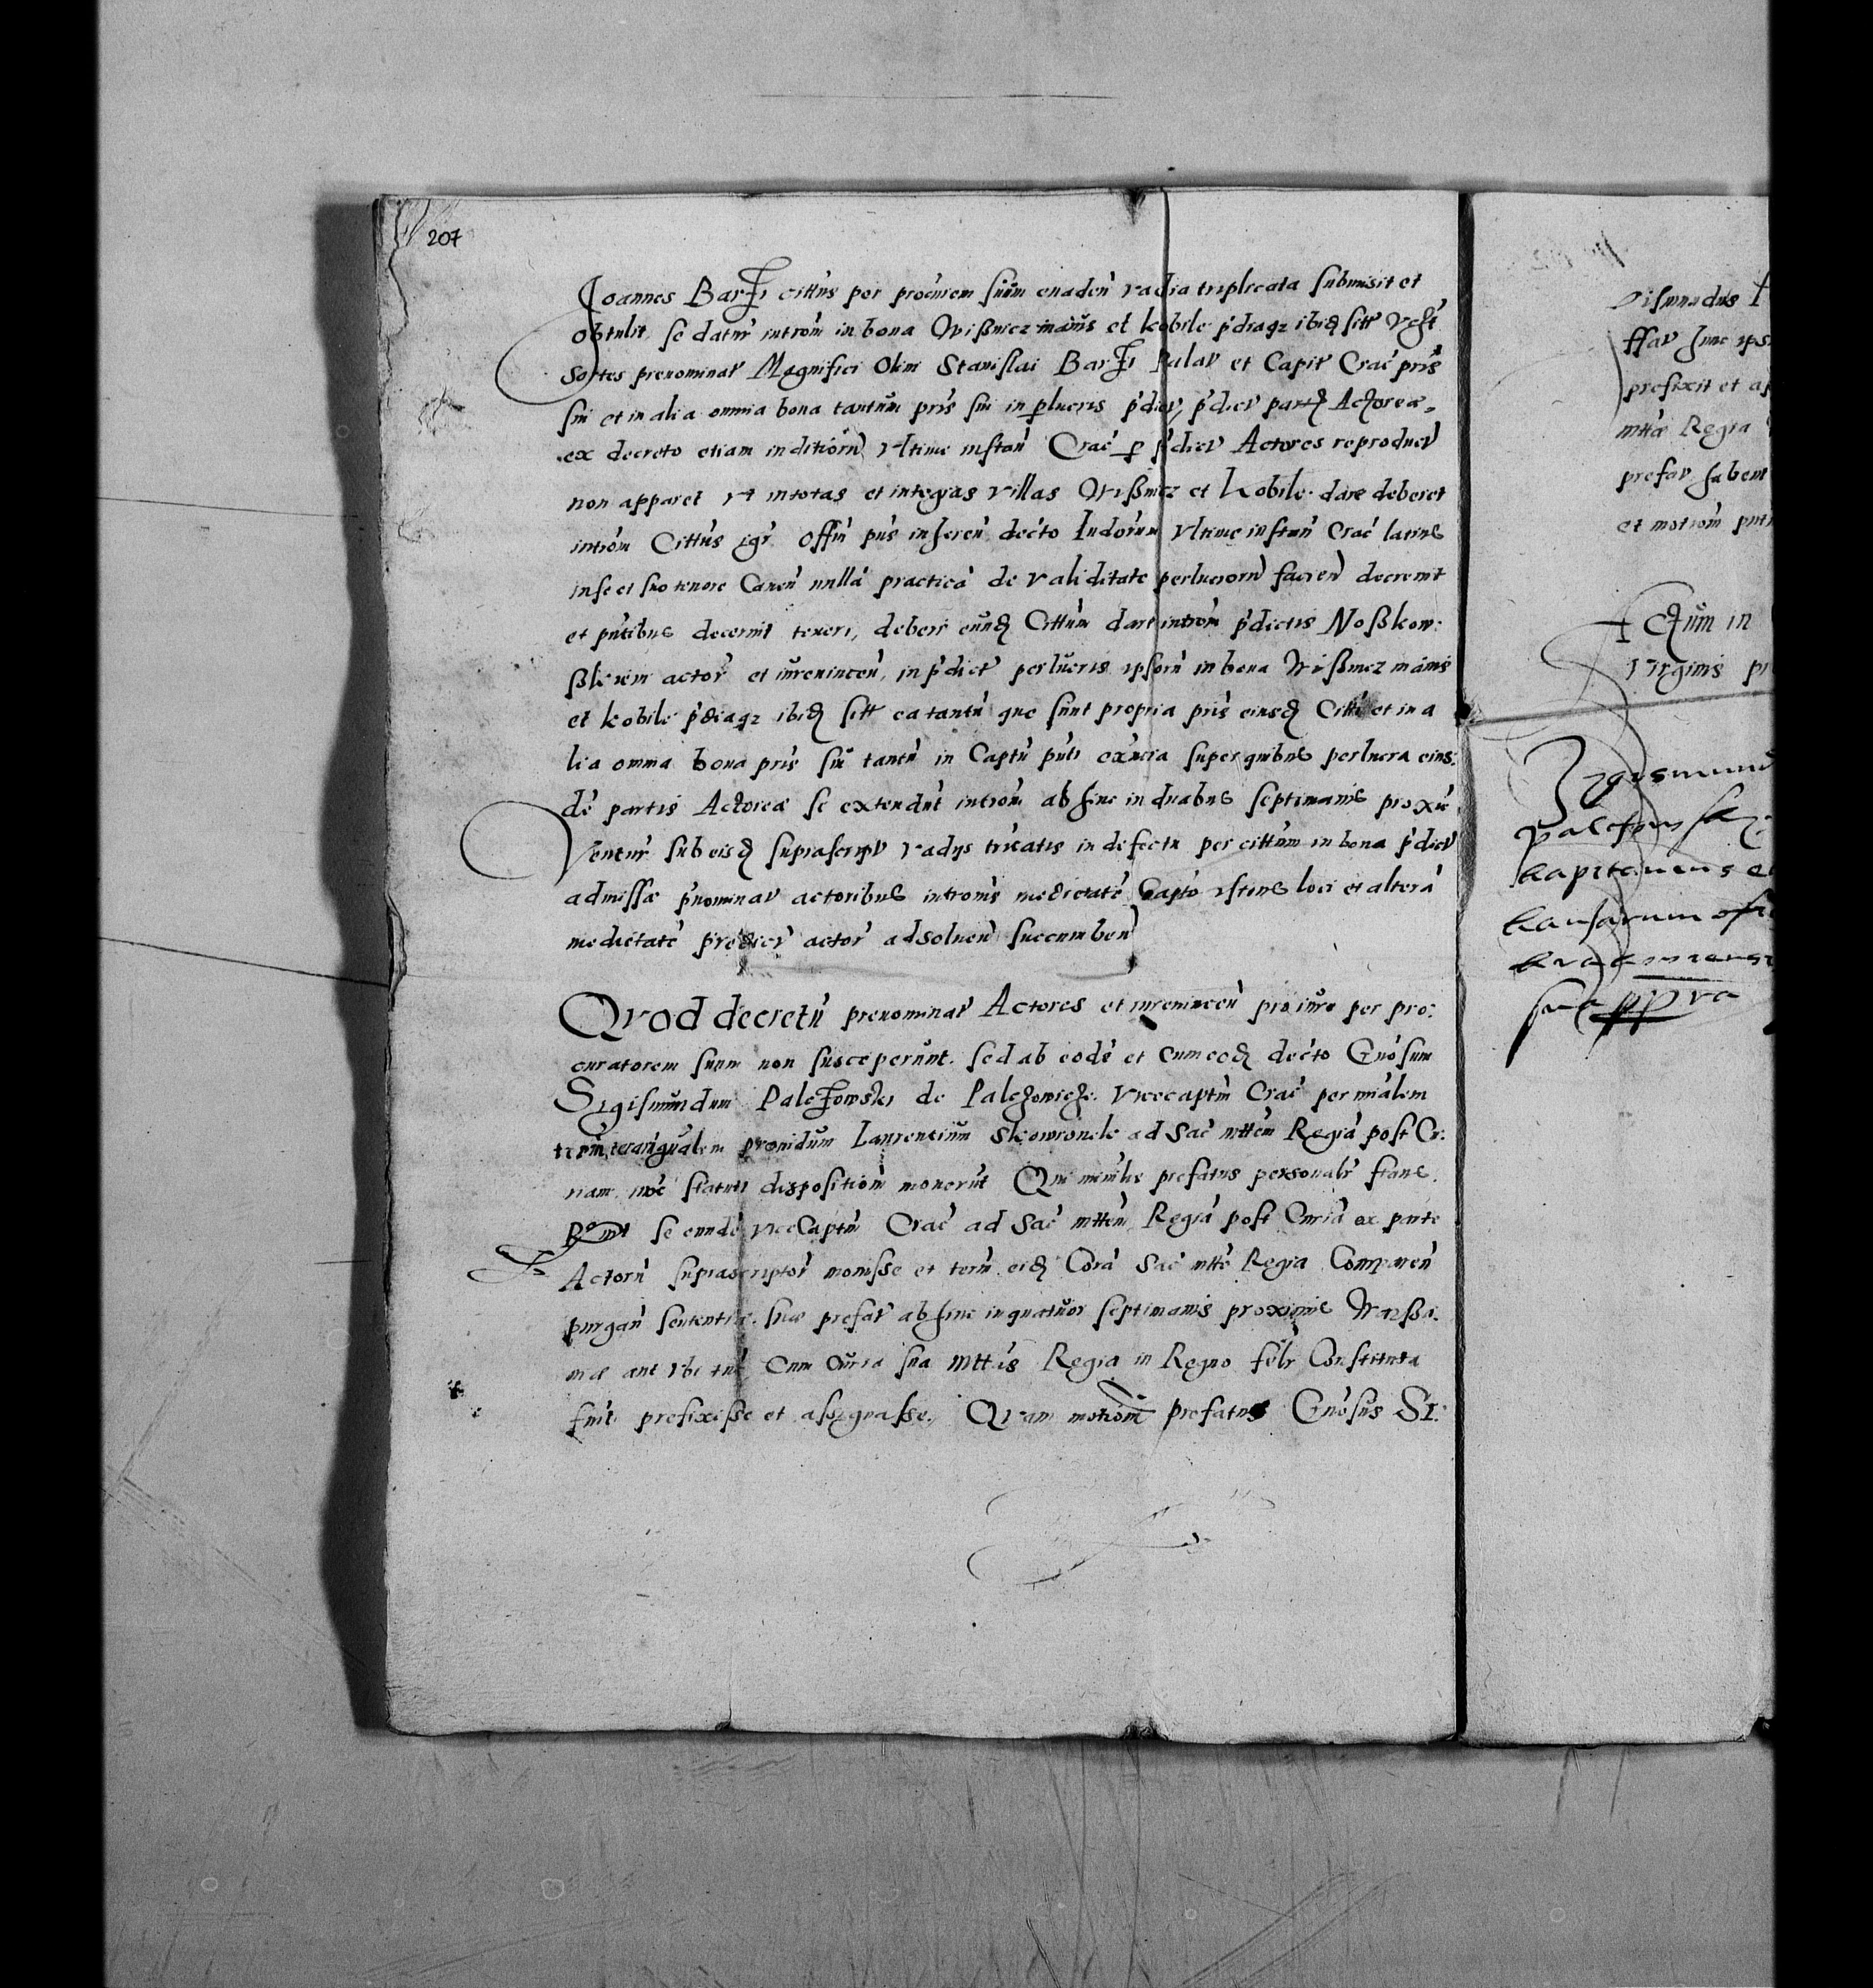 207
Joannes Barzi cittus per procurem suum evaden vadia triplicata submisit et
obtulit se datur introm in bona Wißnicz maius et kobile pdiaqz ibidz sitt
sortes prenominat Magnifici Olim Stanislai Barzi Palat et Capit Crac pris
sui et in alia omnia bona tantum pris sui in plucris pdict, pdict Actoreae,
ex decreto etiam inditiorn vltime instan Crac p pdict Actores reproduct
non apparet vt in totas et integras villas Wißnicz et kobile dare deberet
introm Cittus igr offm pns inheren decto Iudorum vltime instan Crac latius
in se et suo tenore Canen nulla practica de validitate perlucrorn facien decrevit
et pntibus decernit teneri, deberi eundz Cittum dare introm pdictis Noßkow:
ßkiem actor et iurevincen, in pdict perlucris ipsorn in bona Wißnicz mains
et kobile pdiaqz ibidz sitt ea tantu que sunt propria pris eiusdz Citti et in a
lia omnia bona pris sui tantu in Captu pnti exntia super quibus perlucra eius:
de partis Actoreae se extendut introm ab hinc in duabus septimanis proxie
Ventur sub eisdz suprascript vadys tricatis in defectu per cittum in bona pdict
admissae pnominat actoribus introms medietate Capto istius loci et altera
medietate predict actor adsoluen succumben
Qvod decretu prenominat Actores et iurevincen pro iure per pro:
curatorem suum non susceperunt. sed ab eode et cum eodz decto Gnosum
Sigismundum Palczowski de Palczowicze Vicecaptm Crac per mialem
terrm providum Laurentium Skowronek ad Sac mttem Regia post Cu:
riam iuxe statuti dispositiom moverut Qui minlis prefatus personalr stans.
se eunde viceCaptm Crac ad Sac mttem Regia post Curia ex parte
Actorn suprascriptor movisse et term eidz Cora Sac mtte Regia Comparen
purgan sententiae suae prefat ab hinc in quatuor septimanis proximis Warßa:
viae aut vbi tuc Cum Curia sua Mttas Regia in Regno felr Constituta
fuit prefixisse et assignasse. Qvam motiom prefatus Gnosus Si:
gismundus
ffat hinc ips
prefixit et as
mttae Regia
prefat habent
et motiom pnt
Actum in
virginis pr
Zygismunt
kapitanens
sua ppra